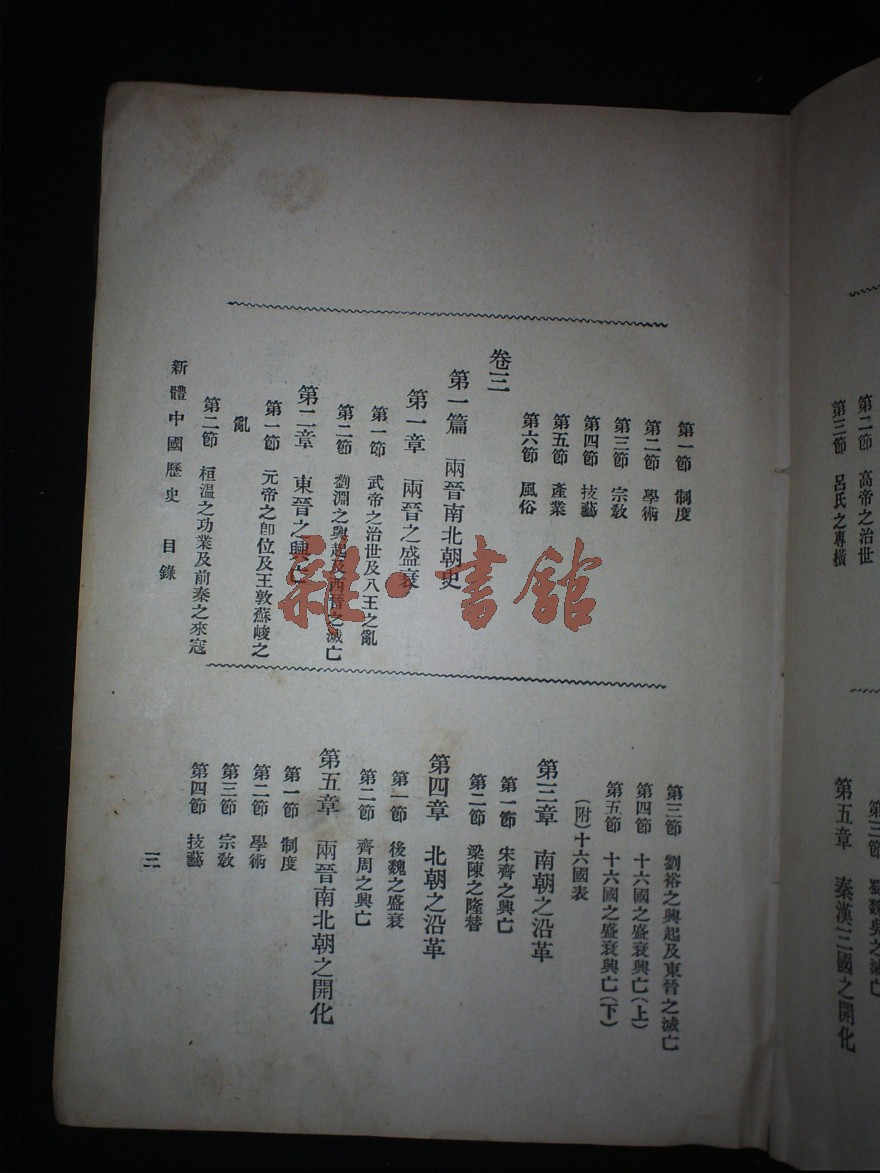 第二節 高帝之治世
第三節 呂氏之專橫
第五章 秦漢三國之開化
第一節 制度
第二節 學術
第三節 宗敎
第四節 技藝
第五節 產業
第六節 風俗
卷三
第一篇 兩晉南北朝史
第一章 兩晉之盛衰
第一節 武帝之治世及八王之亂
第二節 劉淵之興起及西晉之滅亡
第二章 東晉之興亡
第一節 元帝之卽位及王敦蘇峻之
亂
第二節 桓溫之功業及前秦之來寇
第三節 劉裕之興起及東晉之滅亡
第四節 十六國之盛衰興亡(上)
第五節 十六國之盛衰興亡(下)
(附)十六國表
第三章 南朝之沿革
第一節 宋齊之興亡
第二節 梁陳之隆替
第四章 北朝之沿革
第一節 後魏之盛衰
第二節 齊周之興亡
第五章 兩晉南北朝之開化
第一節 制度
第二節 學術
第三節 宗敎
第四節 技藝
新體中國歷史 目錄
三
雜·書館